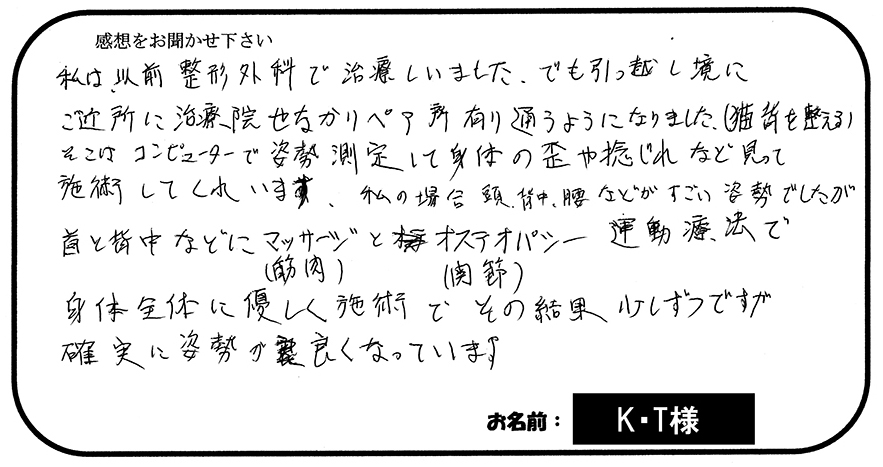 感想をお聞かせ下さい
私は、以前 整形外科で治療しいました、でも引っ越し境に
ご近所に治療院せなかリペア所有り通うようになりました、(猫背を整える)
そこは コンピューターで姿勢測定して身体の歪や捻じれなど見って
施術してくれいます、私の場合 頭、背中、腰などがすごい姿勢でしたが
首と背中などにマッサージとオステオパシー 運動療法で
(筋肉) (関節)
身体全体に優しく施術で その結果 少しずつですが
確実に姿勢が良くなっています
お名前： K・T様